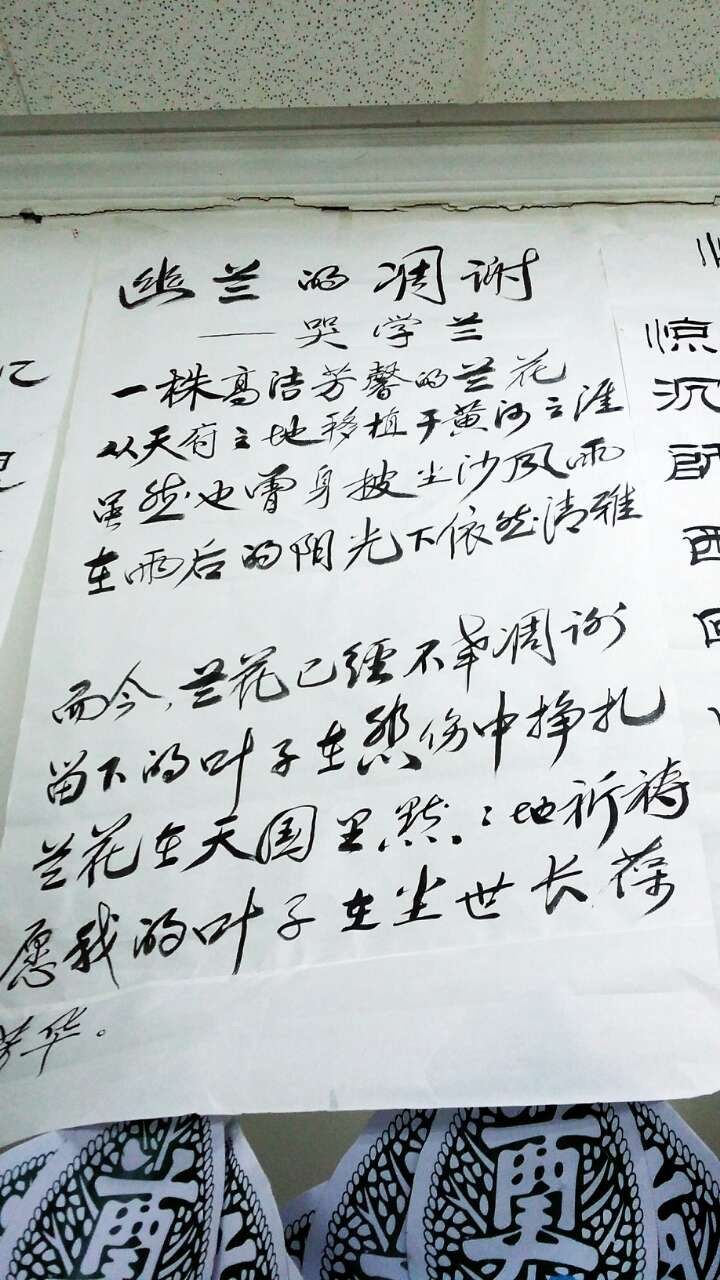 幽兰的凋谢
——哭学兰
一株高洁芳馨的兰花
从天府之地移植于黄河之涯
虽然也曾身披尘沙风雨
在雨后的阳光下依然清雅
而今,兰花已经不幸凋谢
留下的叶子在悲伤中挣扎
兰花在天国里默：地祈祷
愿我的叶子在尘世长葆
芳华。
惊
沉
西
奠